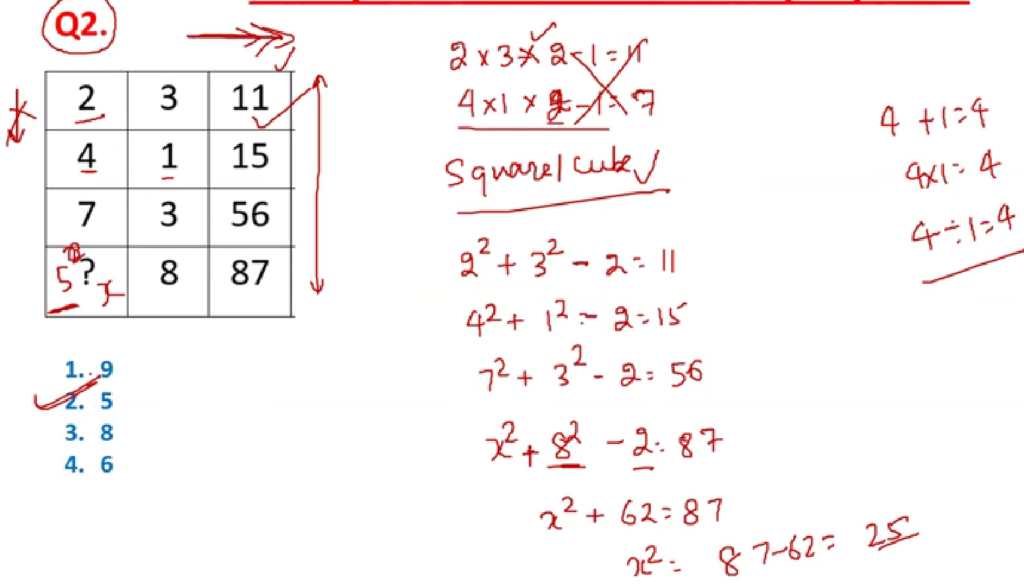 Q2.
2 3 11
4 1 15
7 3 56
5 ? x 8 87
1. 9
2. 5
3. 8
4. 6
2 x 3 x 2 - 1 = 11
4 x 1 x 2 - 1 = 7
Square/cube ✓
2² + 3² - 2 = 11
4² + 1² - 2 = 15
7² + 3² - 2 = 56
x² + 8² - 2 = 87
x² + 62 = 87
x² = 87-62 = 25
4 + 1 = 4
4x1 = 4
4 ÷ 1 = 4